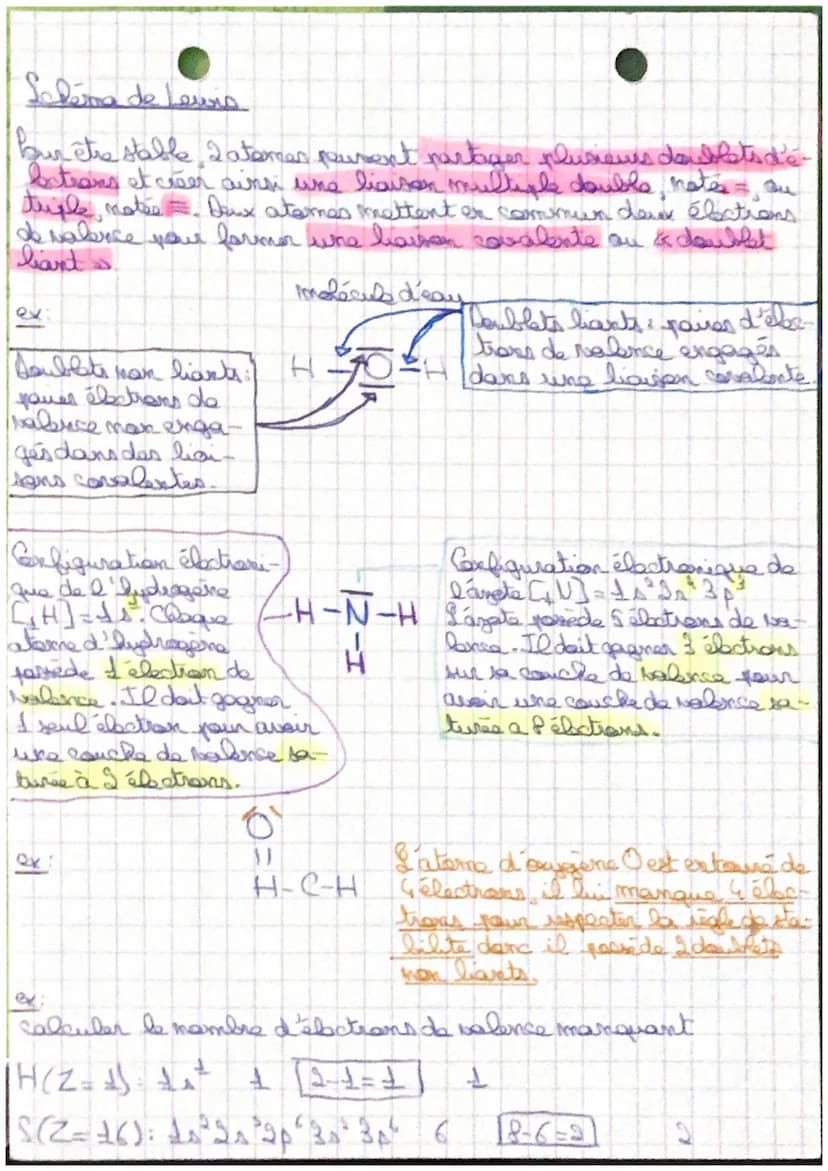 Schéma de Lewis
Pour être stable, 2 atomes peuvent partager plusieurs doublets d'é-
lectrons et créer ainsi une liaison multiple double, notée =, ou
triple, notée ≡. Deux atomes mettent en commun deux électrons
de valence pour former une liaison covalente ou « doublet
liant »
molécule d'eau
ex:
Doublets liants : paires d'élec-
trons de valence engagés
dans une liaison covalente.
H - O - H
Doublets non liants:
paires électrons de
valence non enga-
gés dans des liai-
sons covalentes.
Configuration électroni-
que de l'hydrogène
[₁H]=1s¹. Chaque
atome d'hydrogène
possède 1 électron de
valence. Il doit gagner
1 seul électron pour avoir
une couche de valence sa-
turée à 2 électrons.
H - N - H
H
Configuration électronique de
l'azote [₇N] = 1s² 2s² 3p³
L'azote possède 5 électrons de va-
lence. Il doit gagner 3 électrons
sur sa couche de valence pour
avoir une couche de valence sa-
turée a 8 électrons.
ex:
O
||
H-C-H
L'atome d'oxygène O est entouré de
4 électrons, il lui manque 4 élec-
trons pour respecter la règle de sta-
bilité donc il possède 2 doublets
non liants.
ex:
calculer le nombre d'électrons de valence manquant
H(Z=1): 1s¹ 1 2-1=1 1
S(Z=16): 1s² 2s² 2p⁶ 3s² 3p⁴ 6 8-6=2 2